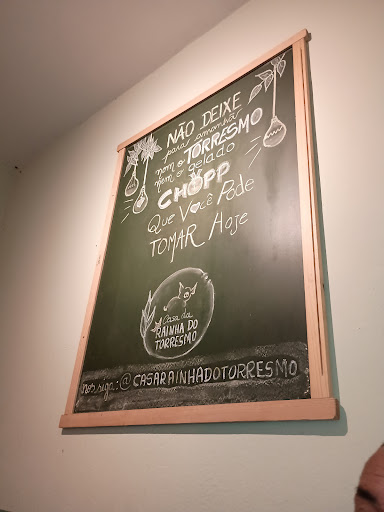 NÃO DEIXE
para amanhã
nem o TORRESMO
nem o gelado
CHOPP
Que Você Pode
TOMAR Hoje
Casa da
RAINHA DO
TORRESMO
nos siga: @CASARAINHADOTORRESMO